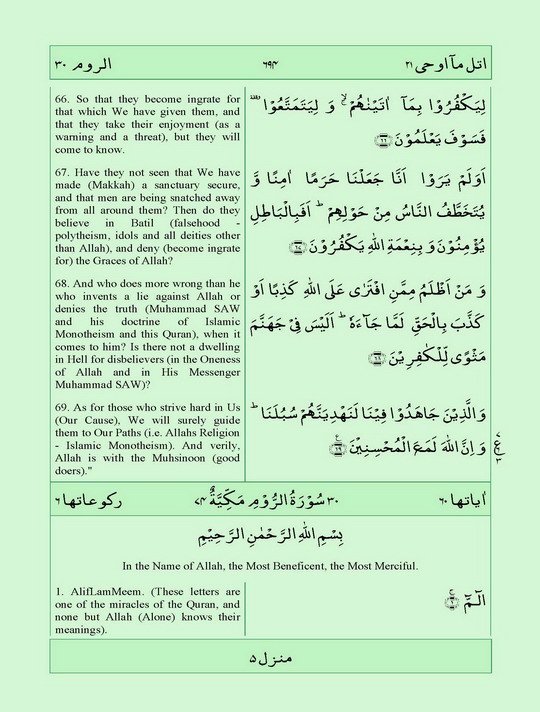 اتل مآ اوحی ۲۱
۶۹۴
الروم ۳۰
66. So that they become ingrate for
that which We have given them, and
that they take their enjoyment (as a
warning and a threat), but they will
come to know.
لِيَكْفُرُوْا بِمَآ اٰتَيْنٰهُمْ ۙۚ وَ لِيَتَمَتَّعُوْا ۥ
فَسَوْفَ يَعْلَمُوْنَ ۶۶
67. Have they not seen that We have
made (Makkah) a sanctuary secure,
and that men are being snatched away
from all around them? Then do they
believe in Batil (falsehood -
polytheism, idols and all deities other
than Allah), and deny (become ingrate
for) the Graces of Allah?
اَوَلَمْ يَرَوْا اَنَّا جَعَلْنَا حَرَمًا اٰمِنًا وَّ
يُتَخَطَّفُ النَّاسُ مِنْ حَوْلِهِمْ ؕ اَفَبِالْبَاطِلِ
يُؤْمِنُوْنَ وَ بِنِعْمَةِ اللّٰهِ يَكْفُرُوْنَ ۶۷
68. And who does more wrong than he
who invents a lie against Allah or
denies the truth (Muhammad SAW
and his doctrine of Islamic
Monotheism and this Quran), when it
comes to him? Is there not a dwelling
in Hell for disbelievers (in the Oneness
of Allah and in His Messenger
Muhammad SAW)?
وَ مَنْ اَظْلَمُ مِمَّنِ افْتَرٰى عَلَى اللّٰهِ كَذِبًا اَوْ
كَذَّبَ بِالْحَقِّ لَمَّا جَآءَهٗ ؕ اَلَيْسَ فِيْ جَهَنَّمَ
مَثْوًى لِّلْكٰفِرِيْنَ ۶۸
69. As for those who strive hard in Us
(Our Cause), We will surely guide
them to Our Paths (i.e. Allahs Religion
- Islamic Monotheism). And verily,
Allah is with the Muhsinoon (good
doers)."
وَالَّذِيْنَ جَاهَدُوْا فِيْنَا لَنَهْدِيَنَّهُمْ سُبُلَنَا ؕ
وَ اِنَّ اللّٰهَ لَمَعَ الْمُحْسِنِيْنَ ۶۹
۷ ع ۳
اٰیاتها ۶۰
۳۰ سُوْرَةُ الرُّوْمِ مَكِّيَّةٌ ۷۴
رکوعاتها ۶
بِسْمِ اللّٰهِ الرَّحْمٰنِ الرَّحِيْمِ
In the Name of Allah, the Most Beneficent, the Most Merciful.
1. AlifLamMeem. (These letters are
one of the miracles of the Quran, and
none but Allah (Alone) knows their
meanings).
الٓمّٓ ۱
منزل ۵